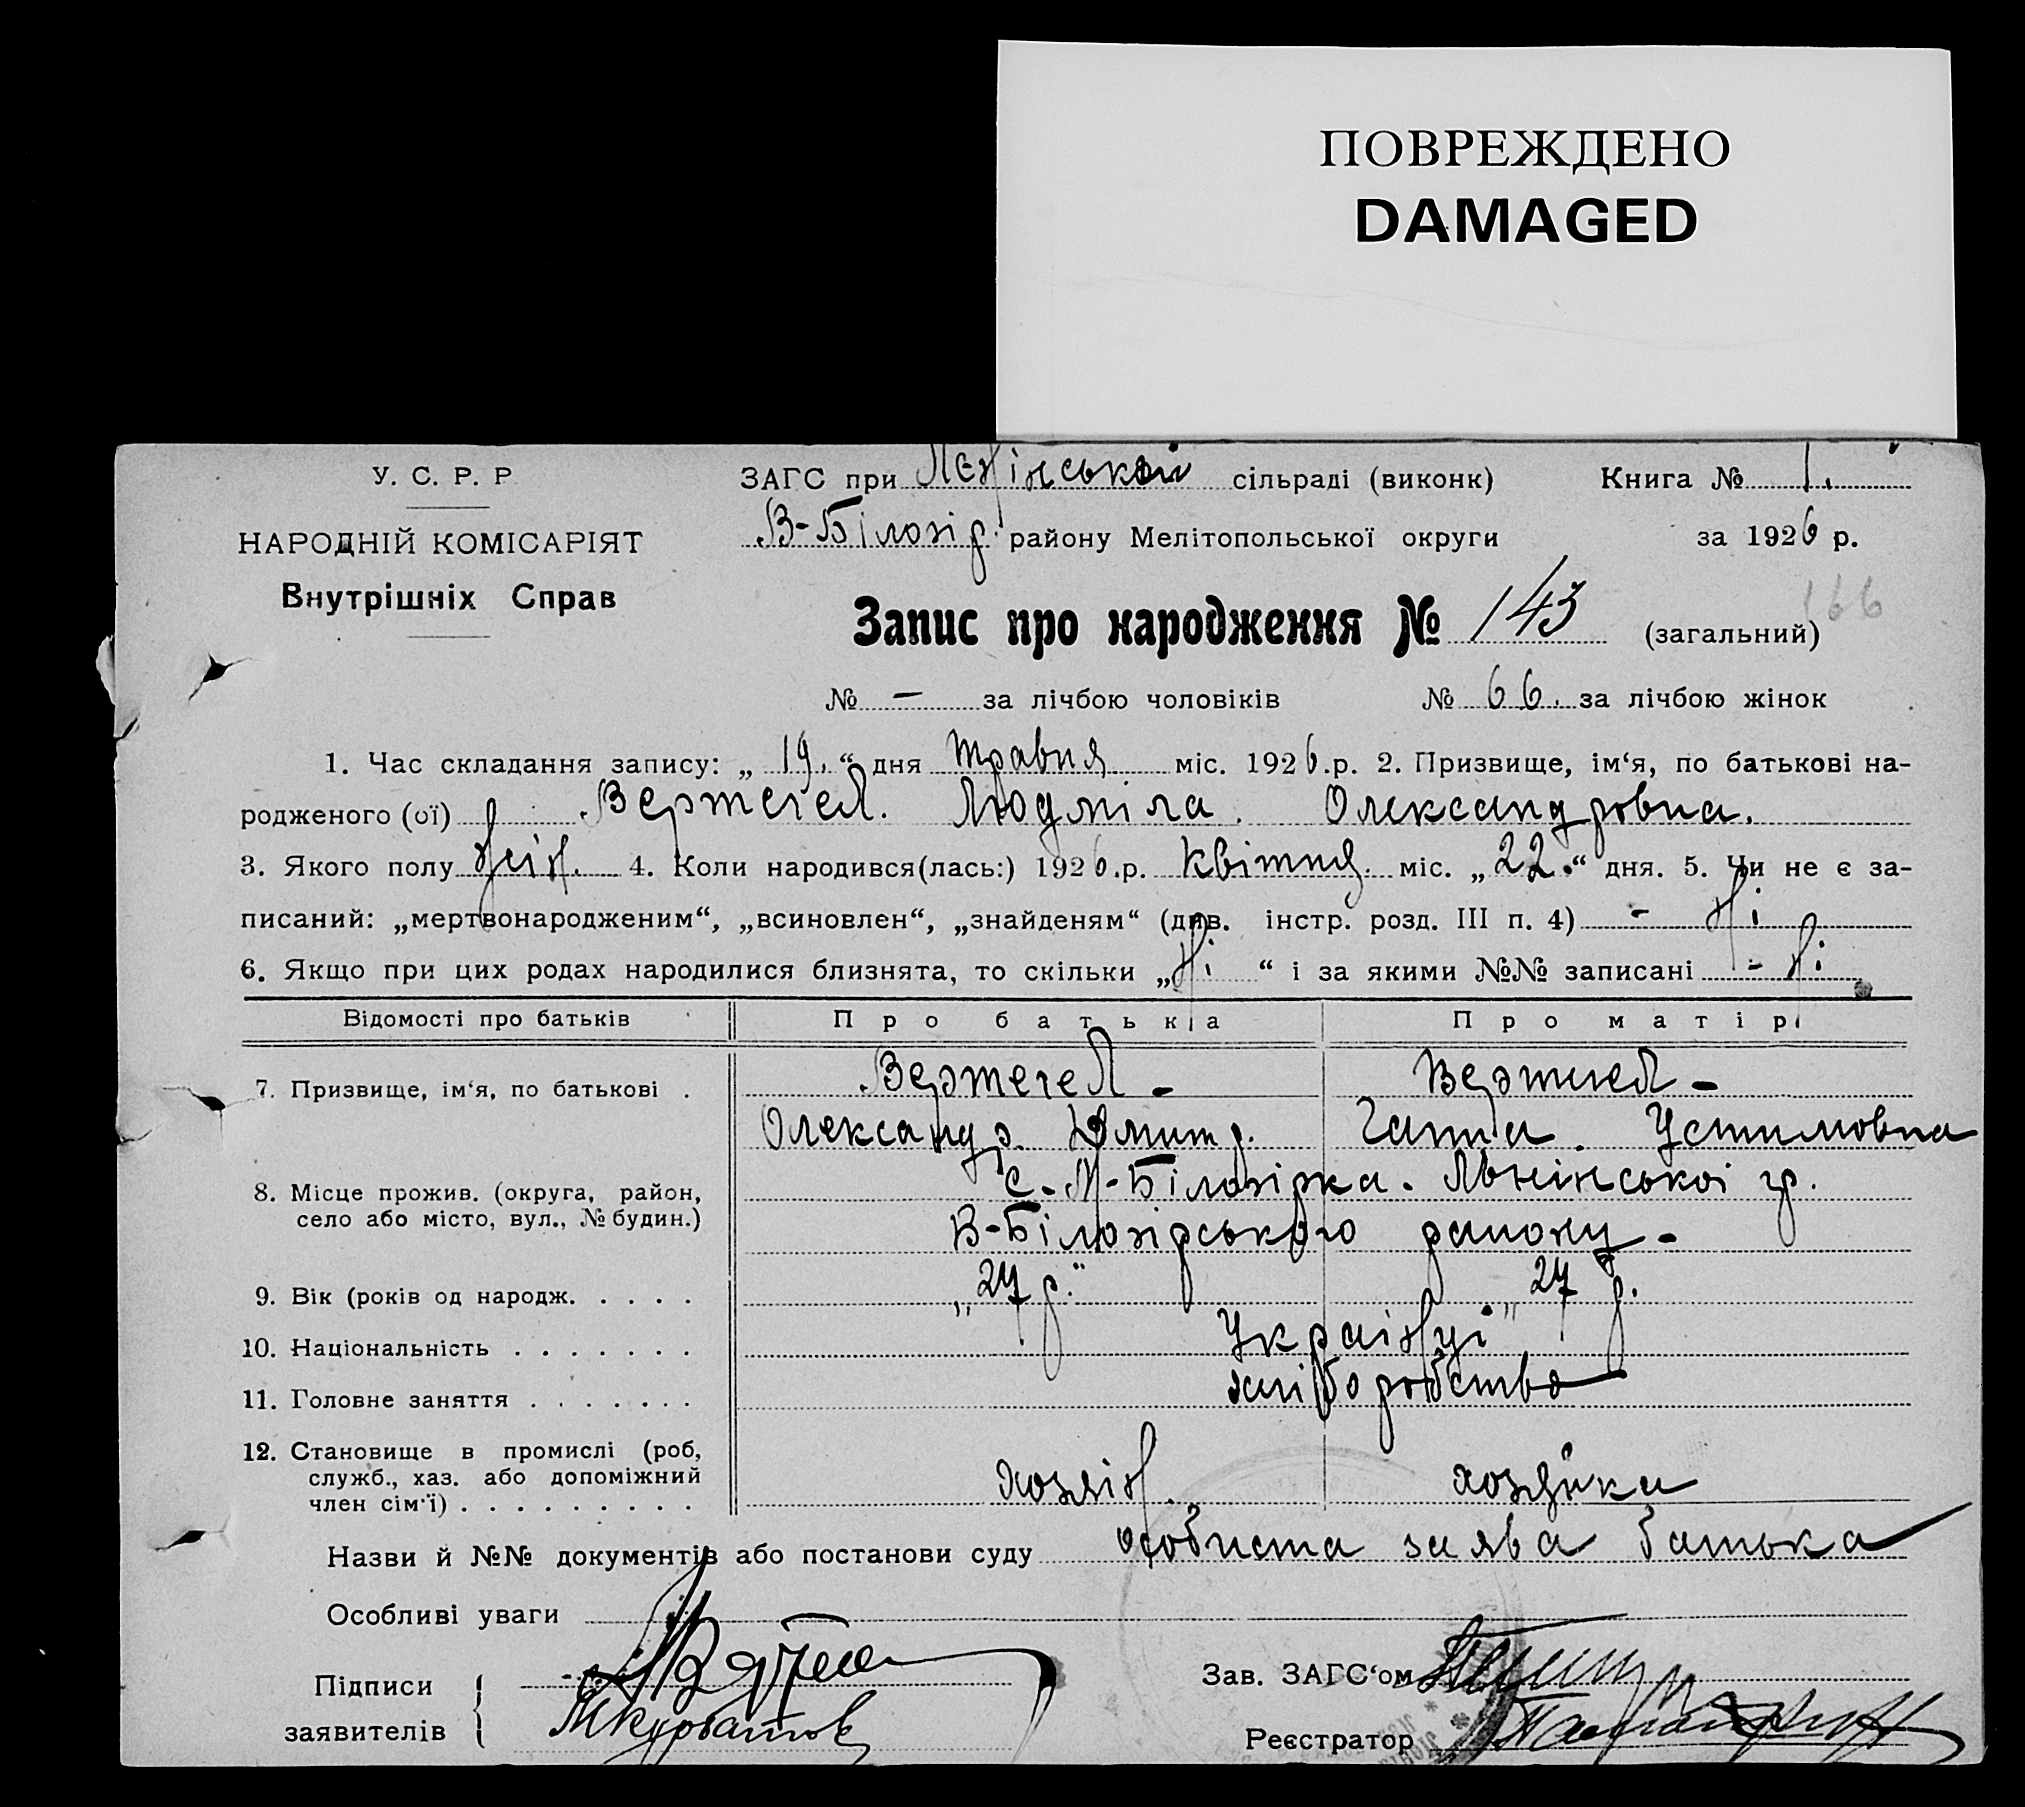 ПОВРЕЖДЕНО
DAMAGED
У. С. Р. Р
НАРОДНІЙ КОМІСАРІЯТ
Внутрішніх Справ
ЗАГС при Ленінській сільраді (виконк) Книга № 1.
В-Білозір. району Мелітопольської округи за 1926 р.
Запис про народження № 143 (загальний) 166
№ — за лічбою чоловіків № 66. за лічбою жінок
1. Час складання запису: „ 19. “ дня травня міс. 1926.р. 2. Призвище, ім‘я, по батькові на-
родженого (ої) Вертегел. Людміла. Олександровна.
3. Якого полу жін. 4. Коли народився(лась:) 1926.р. квітня. міс. „22.“ дня. 5. Чи не є за-
писаний: „мертвонародженим“, „всиновлен“, „знайденям“ (див. інстр. розд. III п. 4) - Ні
6. Якщо при цих родах народилися близнята, то скільки „Ні “ і за якими №№ записані - Ні.
Відомості про батьків Про батька Про матір
7. Призвище, ім‘я, по батькові . Вертегел - Вертегел -
Олександр Дмитр. Ганна. Устимовна
8. Місце прожив. (округа, район,
село або місто, вул., № будин.)
с. М-Білозірка. Ленінської гр.
В-Білозірського району -
9. Вік (років од народж. . . . . „27 р.“ „27 р.
10. Національність . . . . . . . Українці
11. Головне заняття . . . . . . . хліборобство
12. Становище в промислі (роб,
служб., хаз. або допоміжний
член сім‘ї) . . . . . . . . . хозяін. хозяйка
Назви й №№ документів або постанови суду особиста заява батька
Особливі уваги
Підписи
заявителів
М Курбатов
Зав. ЗАГС‘ом
Реєстратор